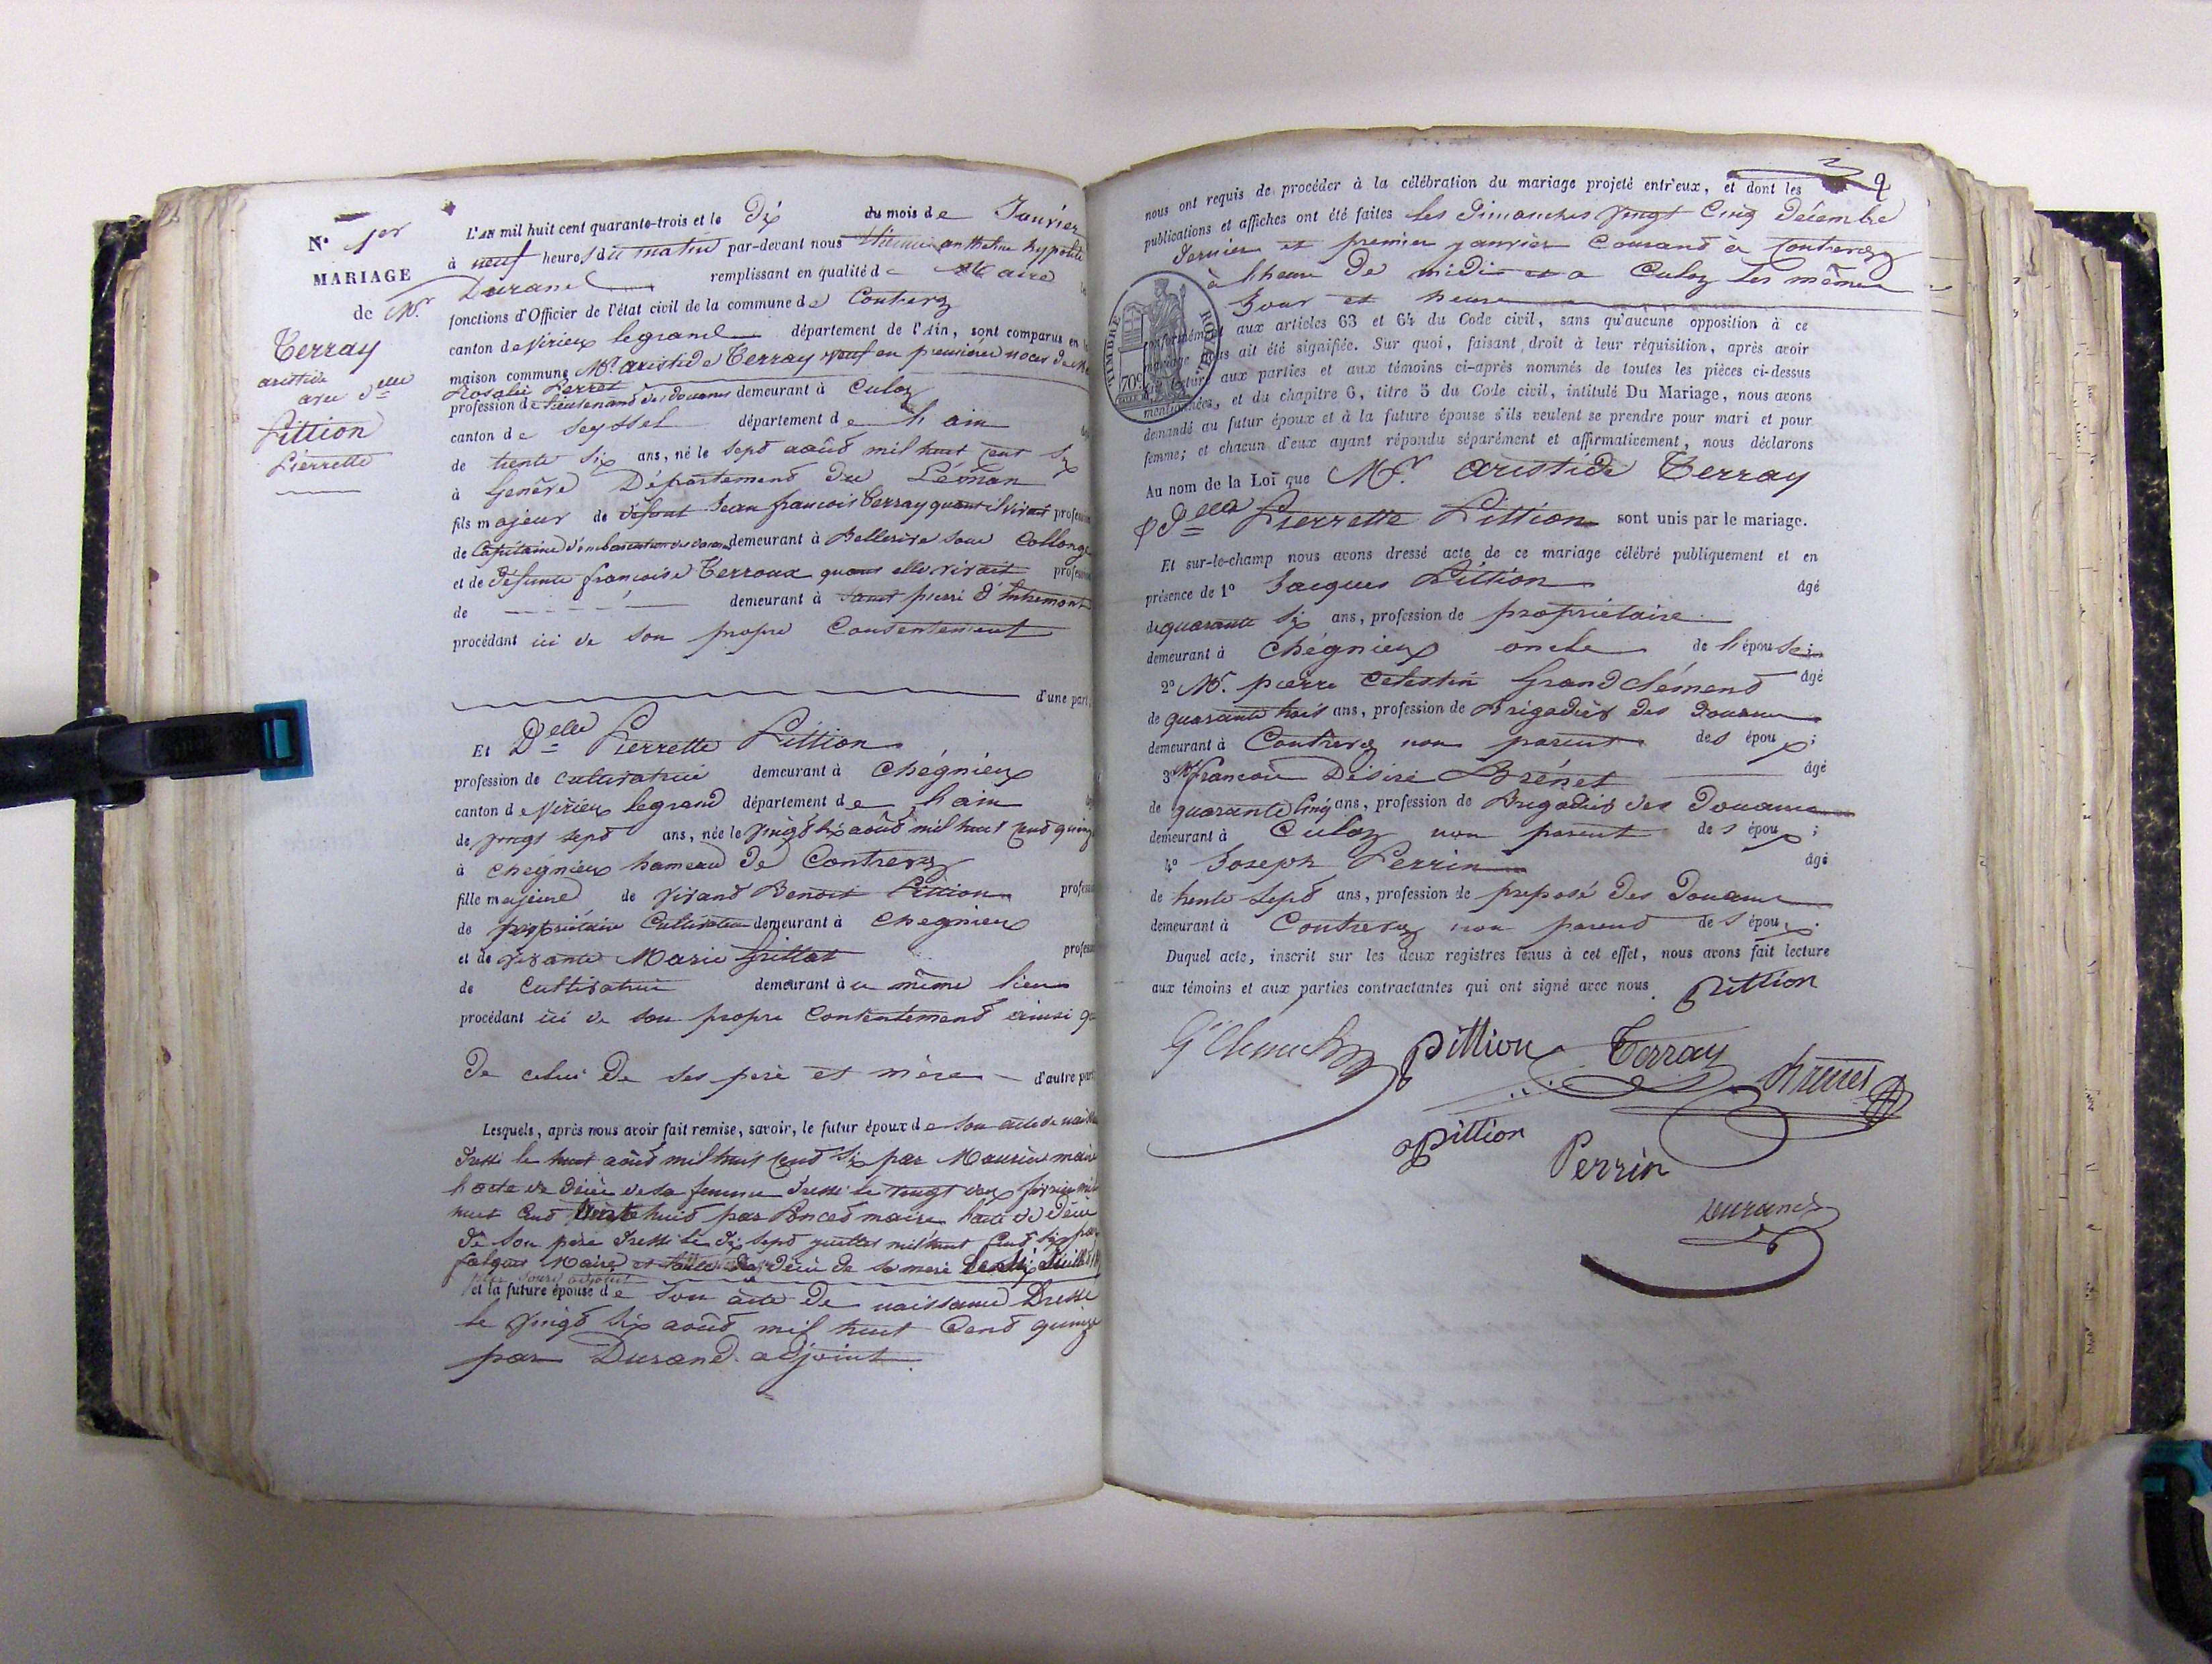 N° 1er
MARIAGE
de Mr.
Terray
aristide
avec Delle
Pittion
Pierrette
L'AN mil huit cent quarante-trois et le Dix du mois de Janvier
à neuf heures du matin par-devant nous anthelme hypolite
Durand remplissant en qualité de Maire
fonctions d'Officier de l'état civil de la commune de Contrevoz
canton de Virieux legrand département de l'Ain, sont comparus en
maison commune Mr. aristide Terray veuf en premières noces de
Rosalie Perret
profession de Lieutenand des douanes demeurant à Culoz
canton de Seyssel département de l'ain
de trente six ans, né le sept août mil huit cent six
à Genève Département du Léman
fils majeur de défunt Jean françois Terray quand il vivait
de Capitaine d'embarcation des douanes demeurant à Bellerive sous Collonge
et de défunte françoise Terroux quand elle vivait
de demeurant à Saint pierre d'Entremont
procédant ici de son propre Consentement
d'une part,
Et Delle Pierrette Pittion
profession de cultivatrice demeurant à Chégnieux
canton de Virieux legrand département de l'ain
de vingt sept ans, née le vingt six août mil huit cent quinze
à Chegnieux hameau de Contrevoz
fille majeure de vivand Benoit Pittion
de propriétaire Cultivateur demeurant à Chegnieux
et de vivante Marie Grillat
de Cultivatrice demeurant à u même lieu
procédant ici de son propre Consentement ainsi que
De celui De ses père et mère d'autre part
Lesquels, après nous avoir fait remise, savoir, le futur époux de son acte de
Dressé le huit août mil huit cent six par Maurice maire
l'acte de décès de sa femme Dressé le vingt deux février mil
huit cent trente huit par Poncet maire l'acte de décès
de son père Dressé le dix sept juillet mil huit cent six par
falques Maire décès de sa mère
et la future épouse de son acte de naissance Dressé
le vingt six août mil huit Cent quinze
par Durand adjoint
2
nous ont requis de procéder à la célébration du mariage projeté entr'eux, et dont les
publications et affiches ont été faites les Dimanches vingt Cinq Décembre
Dernier et premier janvier Courand à Contrevoz
à l'heure de midi et a Culoz les mêmes
Jour et heure
TIMBRE ROYAL
70c
conformément aux articles 63 et 64 du Code civil, sans qu'aucune opposition à ce
mariage nous ait été signifiée. Sur quoi, faisant droit à leur réquisition, après avoir
fait lecture aux parties et aux témoins ci-après nommés de toutes les pièces ci-dessus
mentionnées, et du chapitre 6, titre 5 du Code civil, intitulé Du Mariage, nous avons
demandé au futur époux et à la future épouse s'ils veulent se prendre pour mari et pour
femme; et chacun d'eux ayant répondu séparément et affirmativement, nous déclarons
Au nom de la Loi que Mr. aristide Terray
& Delle Pierrette Pittion sont unis par le mariage.
Et sur-le-champ nous avons dressé acte de ce mariage célébré publiquement et en
présence de 1° Jacques Pittion âgé
de quarante six ans, profession de propriétaire
demeurant à Chégnieux oncle de l'épouse;
2° Mr. pierre Celestin Grand clément âgé
de quarante trois ans, profession de Brigadier des Douanes
demeurant à Contrevoz non parent des époux;
3° Mr françois Désiré Brénet âgé
de quarante Cinq ans, profession de Brigadier des Douanes
demeurant à Culoz non parent des époux;
4° Joseph Perrin âgé
de trente sept ans, profession de preposé des Douanes
demeurant à Contrevoz non parend des époux.
Duquel acte, inscrit sur les deux registres tenus à cet effet, nous avons fait lecture
aux témoins et aux parties contractantes qui ont signé avec nous.
Pittion
Pittion
Terray
Pittion
Perrin
Durand